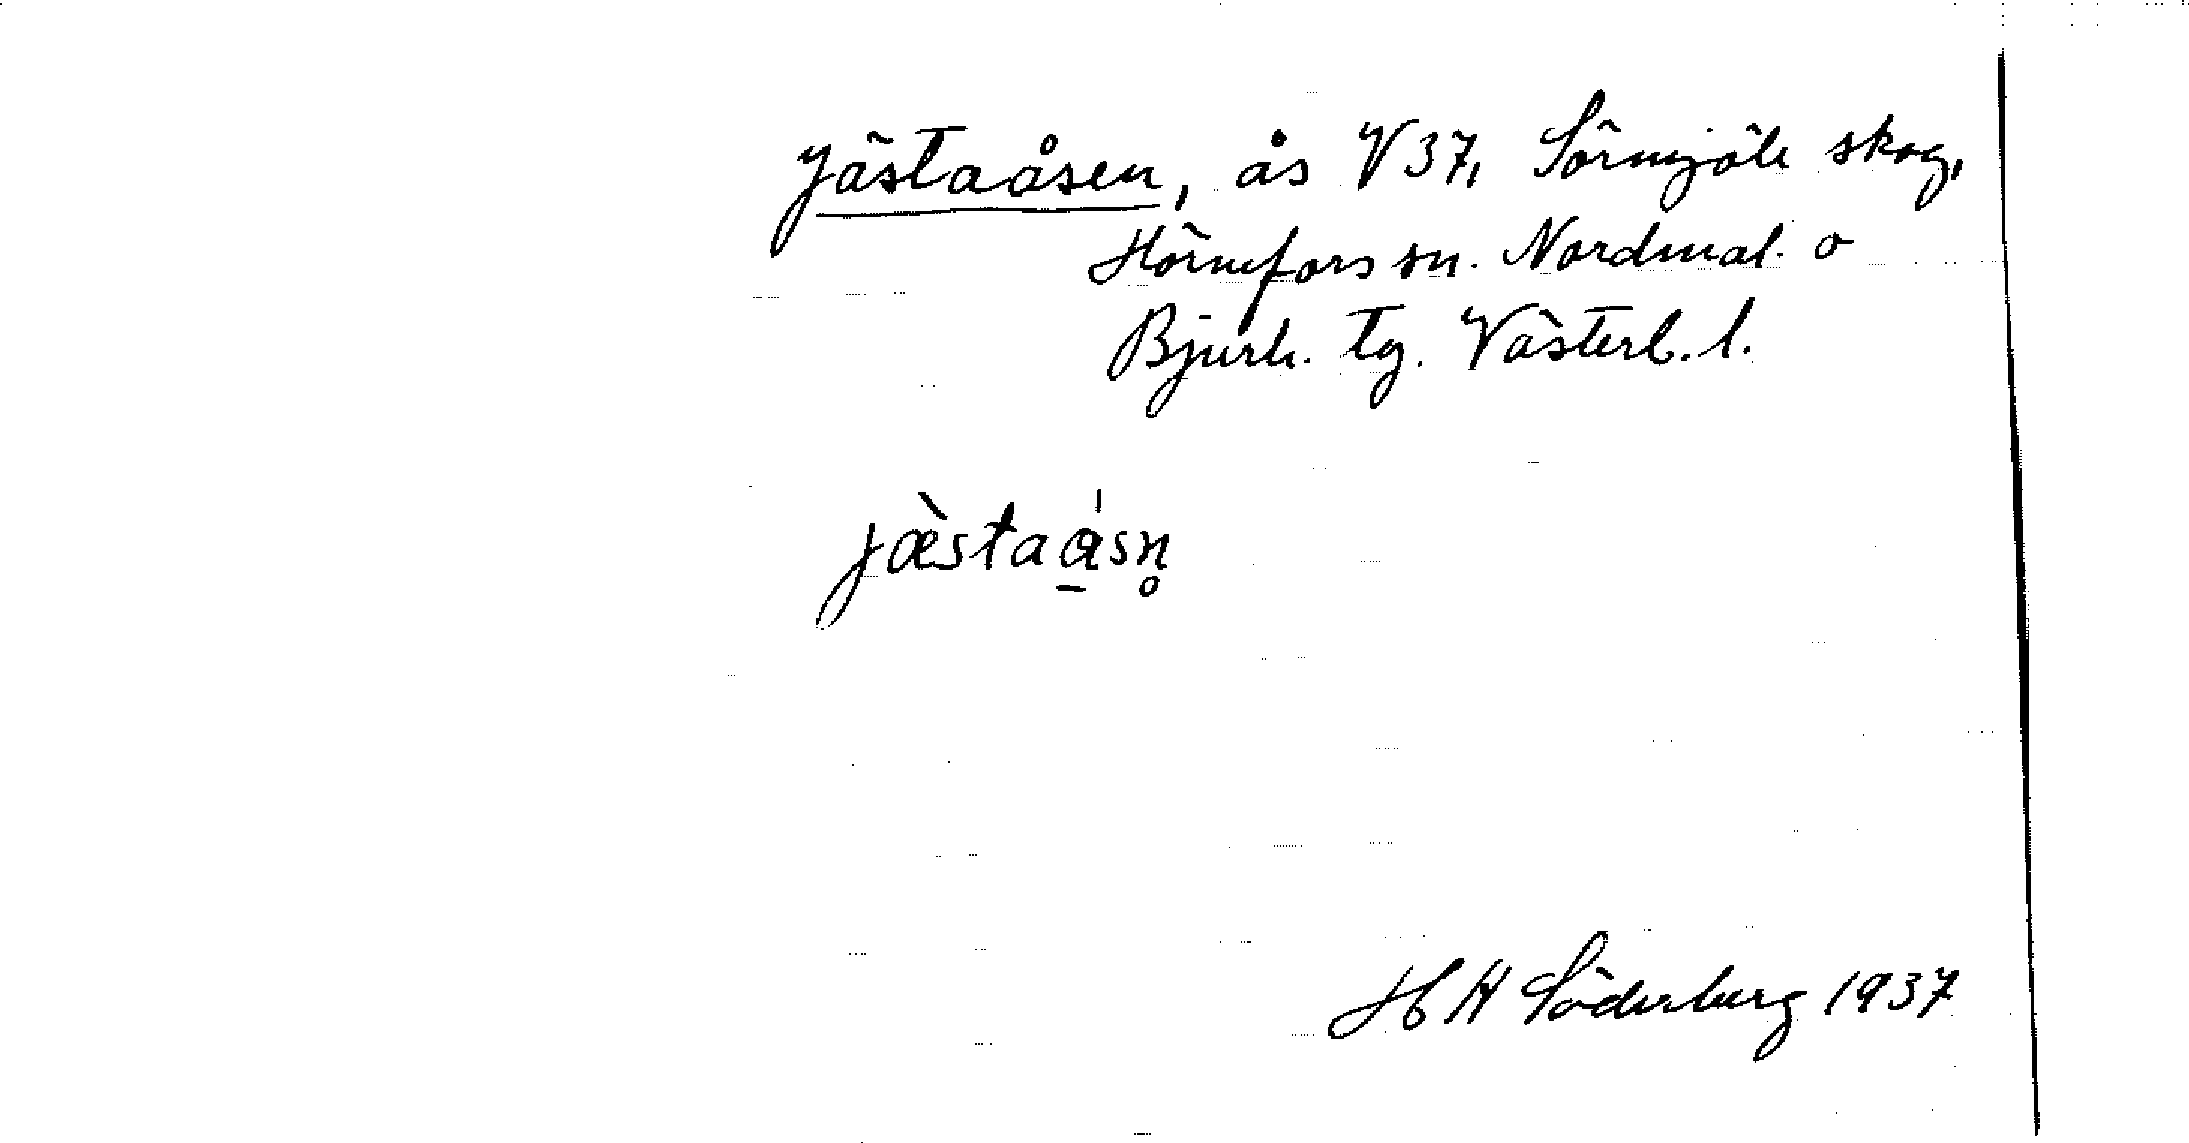 Jästaåsen, ås V 37, Sörmjöle skog,
Hörnefors sn. Nordmal. o
Bjurh. tg. Västerb. l.
jæ̀staa̱̍sn̥
H A Söderberg 1937